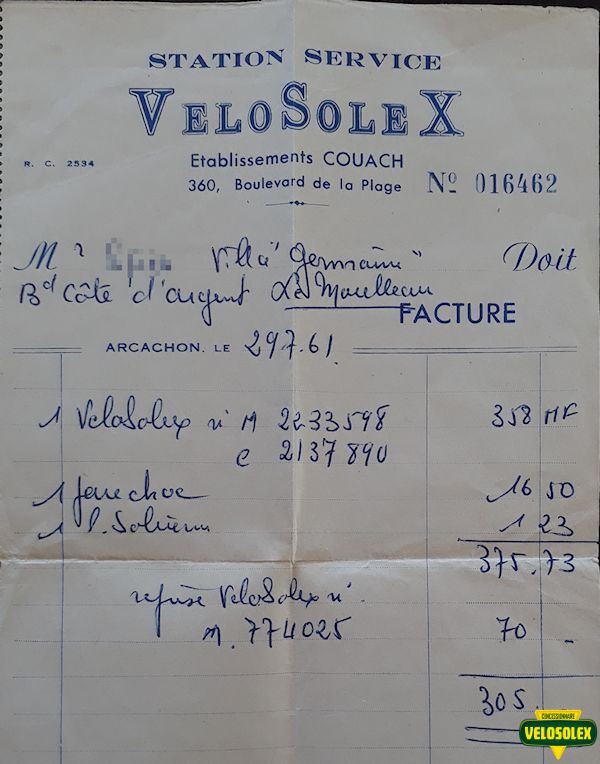 STATION SERVICE
VELOSOLEX
R. C. 2534
Etablissements COUACH
360, Boulevard de la Plage
Nº 016462
Mr Villa "Germaine" Doit
Bd Côte d'argent Le Moulleau
FACTURE
ARCACHON. LE 29.7.61
1 VeloSolex n° M 2233598 358 NF
C 2137890
1 parechoc 16 50
1 1 23
375.73
reprise VeloSolex n°
M. 774025 70 -
305.
CONCESSIONNAIRE
VELOSOLEX